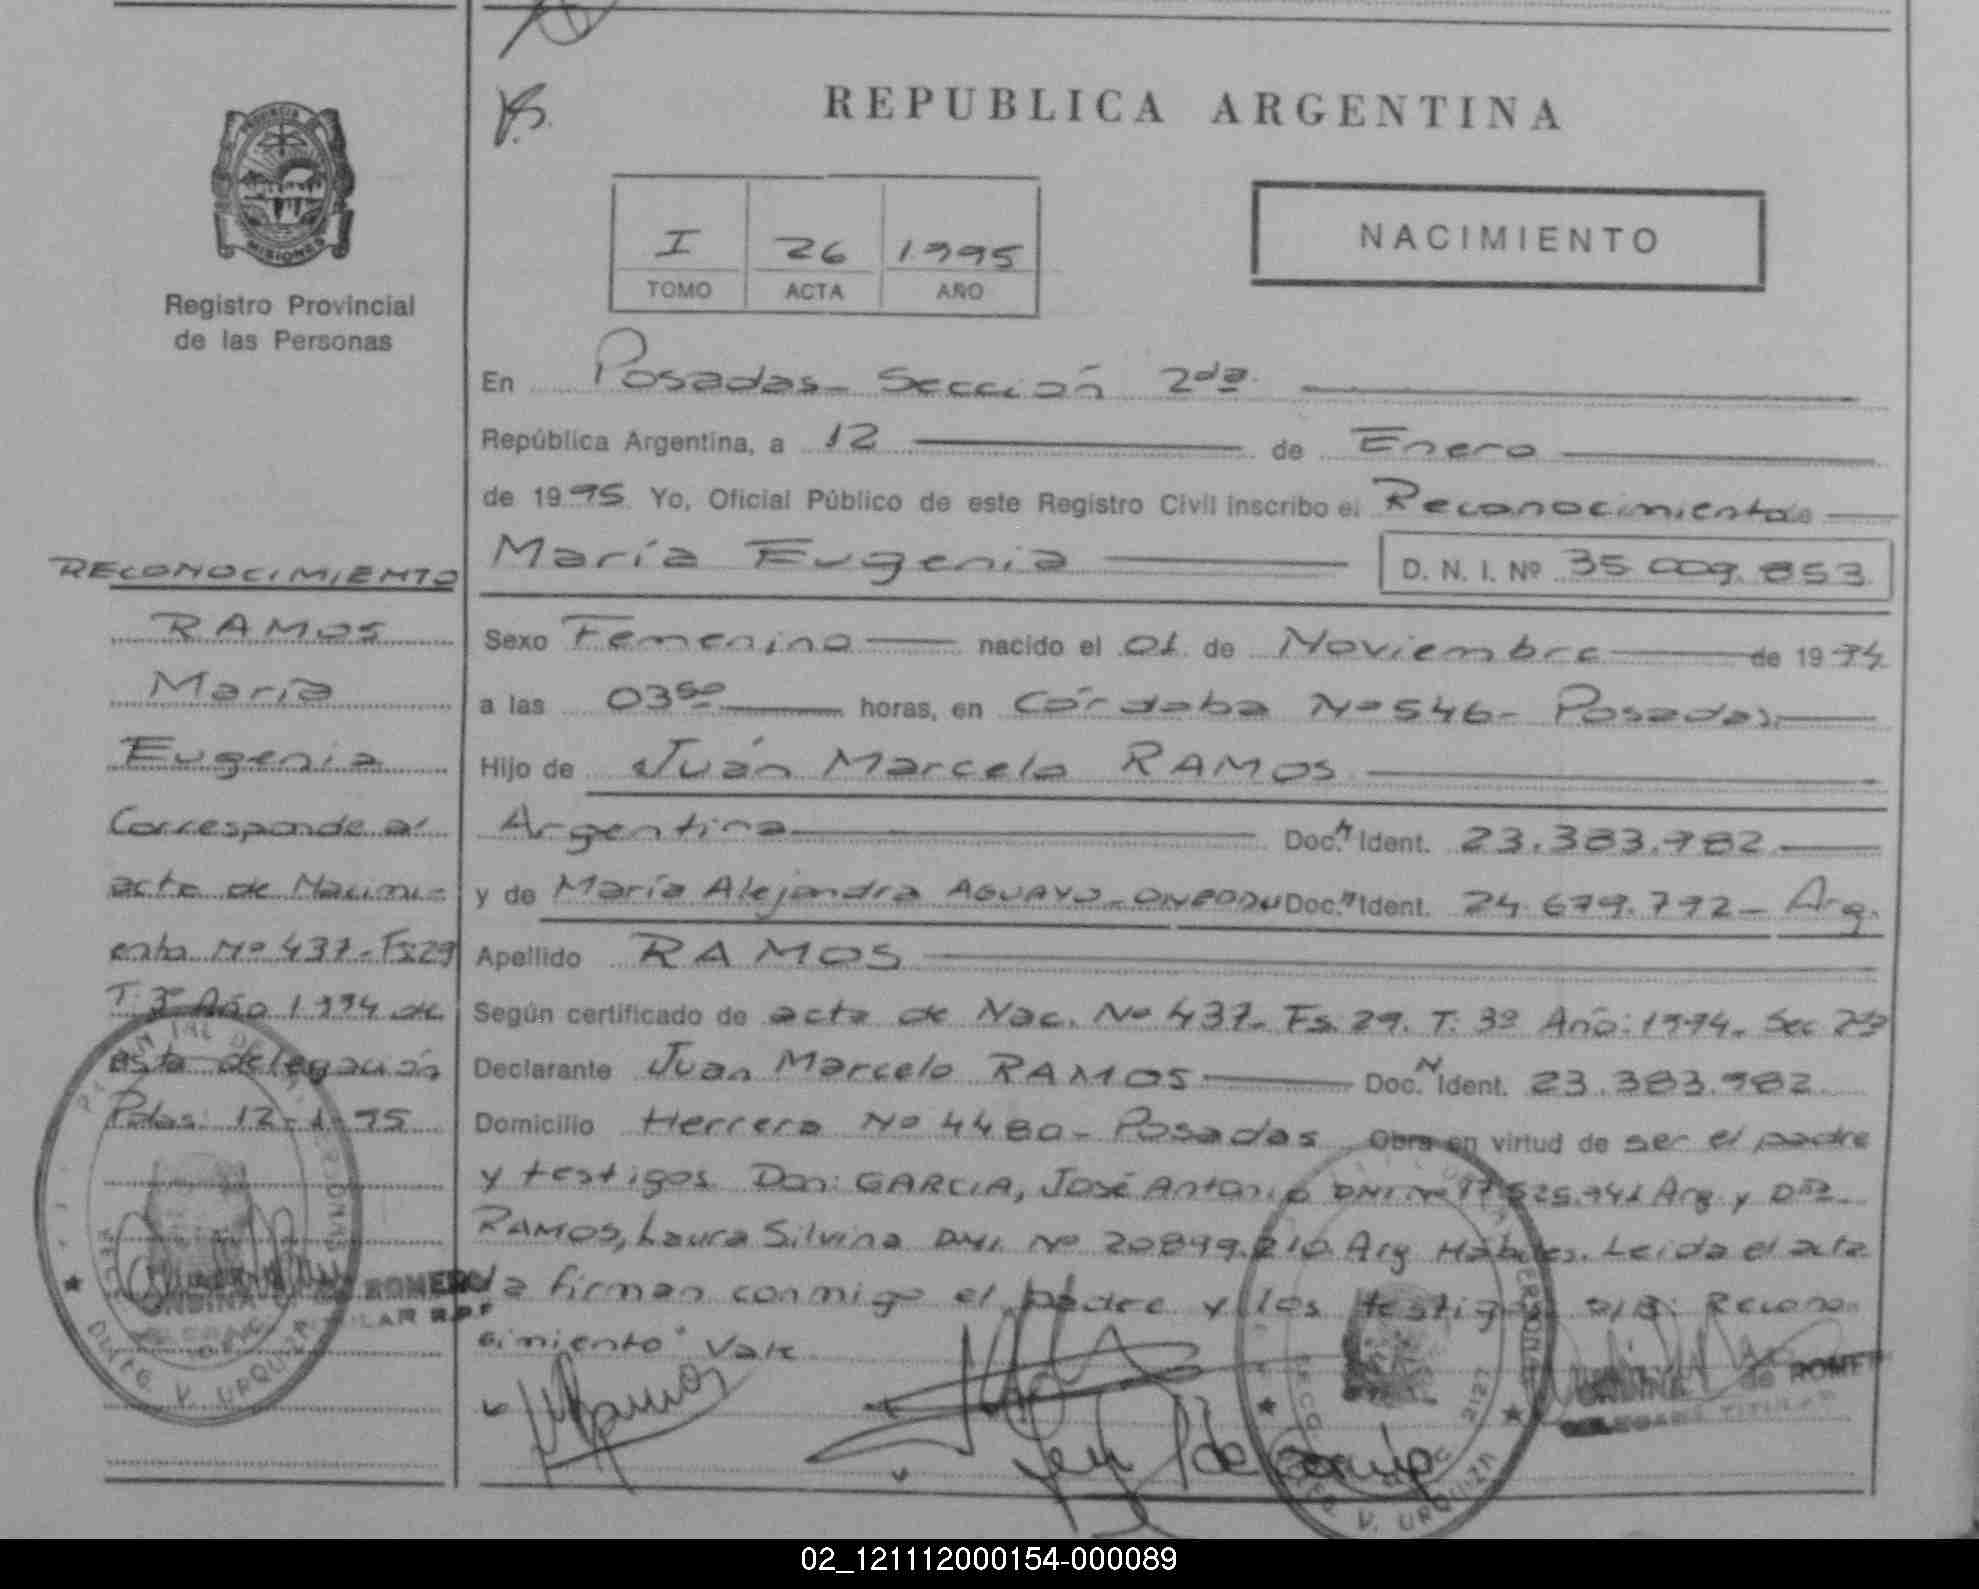 REPUBLICA ARGENTINA
PROVINCIA DE
MISIONES
Registro Provincial
de las Personas
I 26 1995
TOMO ACTA AÑO
NACIMIENTO
En Posadas - Sección 2da.
República Argentina, a 12 de Enero
de 1995 Yo, Oficial Público de este Registro Civil inscribo el Reconocimiento de
María Eugenia D. N. I. Nº 35.009.853
Sexo Femenino nacido el 01 de Noviembre de 1994
a las 03 horas, en Córdoba Nº 546 - Posadas
Hijo de Juán Marcelo RAMOS
Argentina Doc. Ident. 23.383.982
y de María Alejandra AGUAYO Doc. Ident. 24.679.792 - Arg.
Apellido RAMOS
Según certificado de acta de Nac. Nº 437. Fs. 29. T. 3º Año: 1994. Sec 2da
Declarante Juan Marcelo RAMOS Doc. N Ident. 23.383.982
Domicilio Herrera Nº 4480 - Posadas Obra en virtud de ser el padre
y testigos Don: GARCIA, José Antonio DNI Nº Arg y Dña
RAMOS, Laura Silvina DNI. Nº 20899.210 Arg Hábiles. Leida el acta
la firman conmigo el padre y los testigos S/B: Recono-
cimiento" Vale
RECONOCIMIENTO
RAMOS
María
Eugenia
Corresponde al
acta de Nacimi-
ento Nº 437 - Fs. 29
T. 3º Año 1994 de
esta delegación
Pdas: 12-1-95
ONDINA ROMERO
TITULAR R.P.P
DELEGADA TITULAR
DPTO. V. URQUIZA
02_121112000154-000089